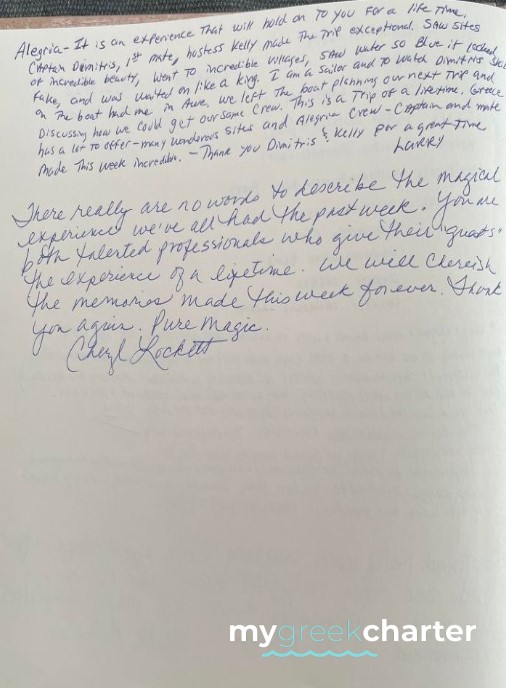 Alegria - It is an experience That will hold on To you For a life Time.
Captain Dimitris, 1st mate, hostess Kelly made The Trip exceptional. Saw sites
of incredible beauty, went To incredible villages, saw water so Blue it looked
fake, and was waited on like a king. I am a Sailor and To watch Dimitris
on The boat had me in Awe. we left The boat planning our next Trip and
Discussing how we could get our same Crew. This is a Trip of a lifetime. Greece
has a lot To offer - many wonderous sites and Alegria Crew - Captain and mate
made This week incredible. - Thank you Dimitris & Kelly for a great Time
LARRY
There really are no words to describe the magical
experience we've all had the past week. You are
both talented professionals who give their "guests"
the experience of a lifetime. We will cherish
the memories made this week forever. Thank
you again. Pure Magic.
Cheryl Lockett
mygreekcharter